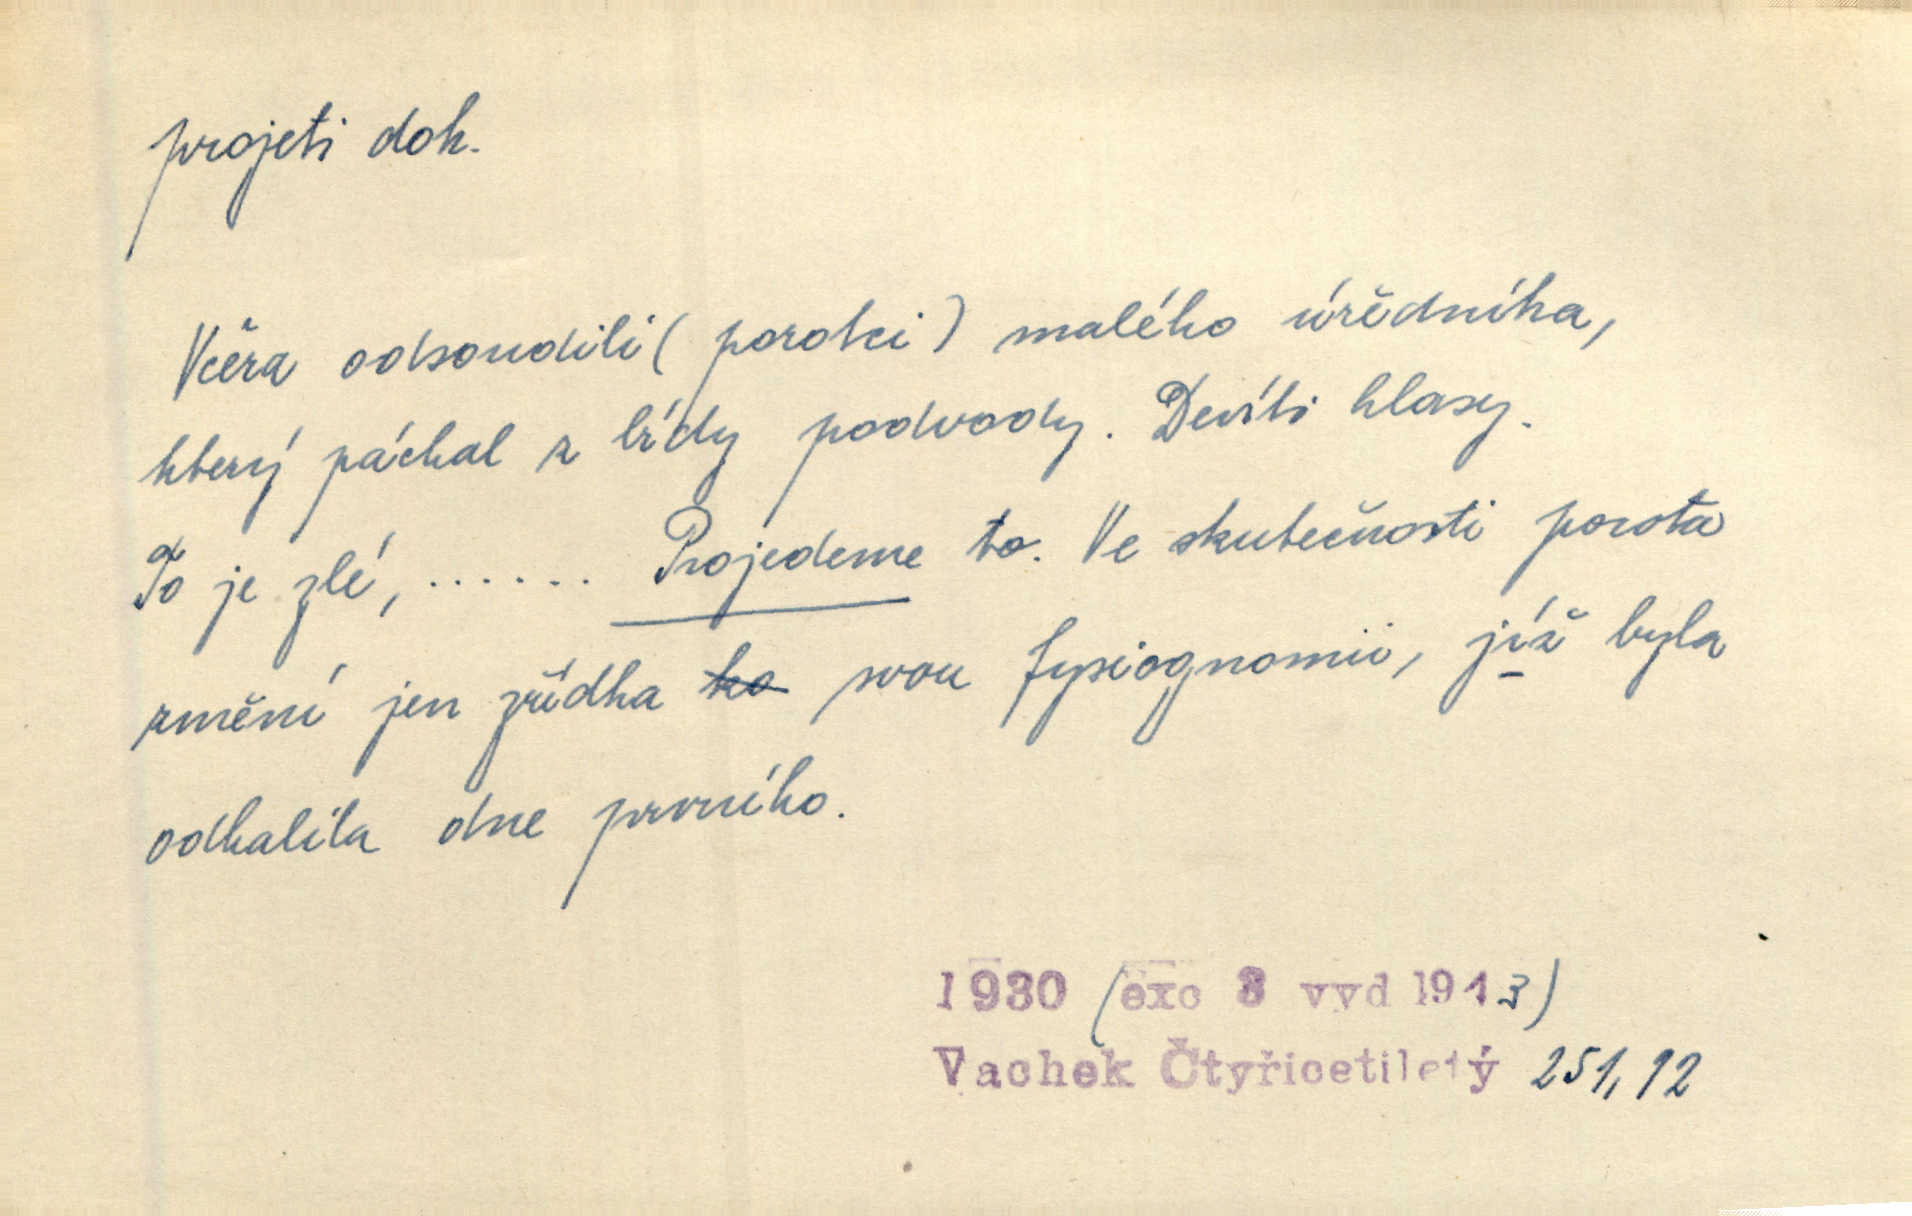 projeti dok.
Včera odsoudili (porotci) malého úředníka,
který páchal z bídy podvody. Devíti hlasy.
To je zlé, ...... Projedeme to. Ve skutečnosti porota
změní jen zřídka ko svou fysiognomii, jíž byla
odhalila dne prvního.
1930 (exc 3 vyd 1943)
Vachek Čtyřicetiletý 251, 12